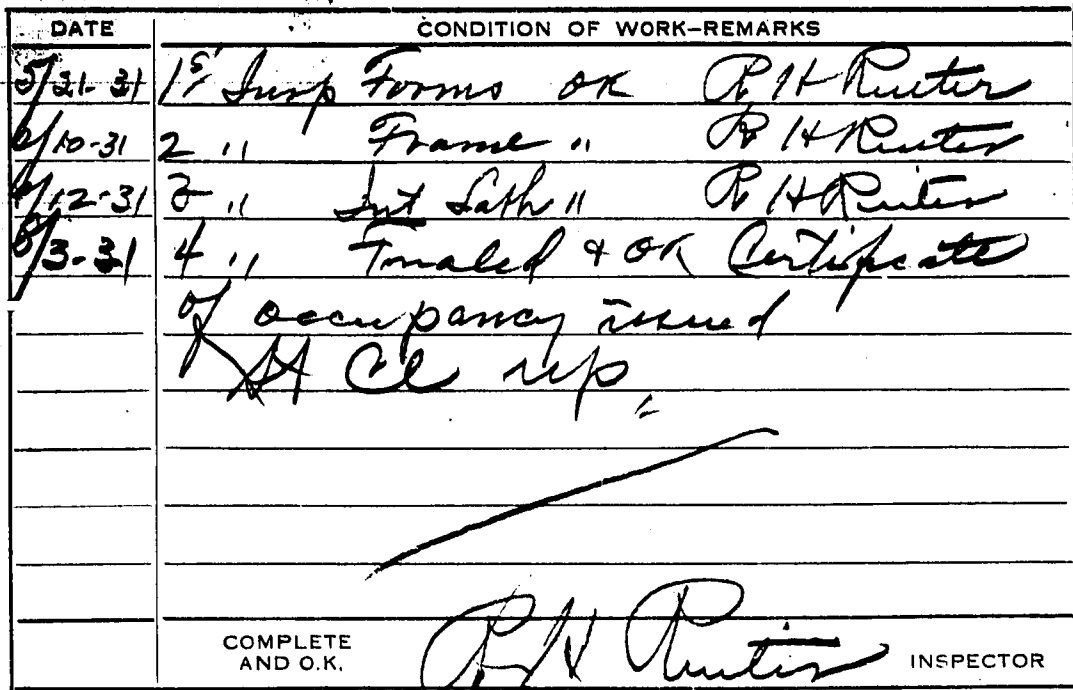 DATE CONDITION OF WORK-REMARKS
5/21-31 1st Insp Forms OK R H Reuter
6/10-31 2 " Frame " R H Reuter
6/12-31 3 " Int Lath " R H Reuter
8/3-31 4 " Finaled & OK Certificate
of occupancy issued
St Cl up
COMPLETE
AND O.K. R H Reuter INSPECTOR